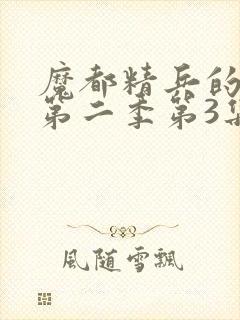 魔都精兵的
第二季第3集
風随雪飄